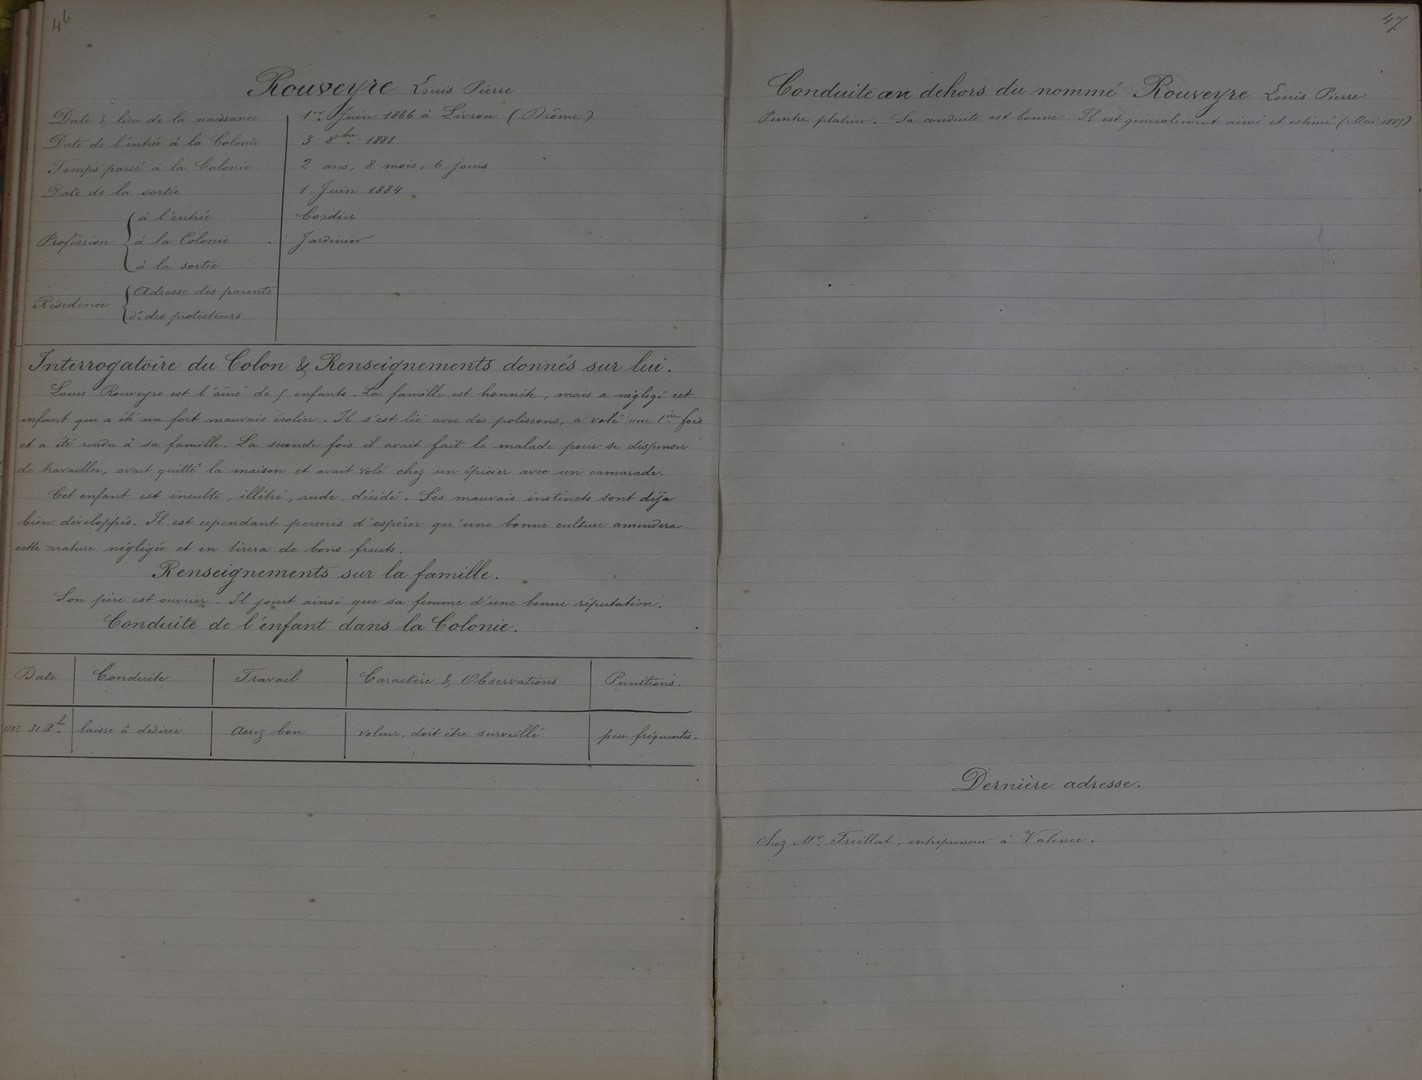 46
Rouveyre Louis Pierre
Date & lieu de la naissance 1er Juin 1866 à Livron (Drôme)
Date de l'entrée à la Colonie 3 8bre 1881
Temps passé à la Colonie 2 ans, 8 mois, 6 jours
Date de la sortie 1 Juin 1884
Profession { à l'entrée Cordier
à la Colonie Jardinier
à la sortie
Résidence { Adresse des parents
do des protecteurs
Interrogatoire du Colon & Renseignements donnés sur lui.
Louis Rouveyre est l'aîné de 5 enfants. La famille est honnête, mais a négligé cet
enfant qui a été un fort mauvais écolier. Il s'est lié avec des polissons, a volé une 1ère fois
et a été rendu à sa famille. La seconde fois il avait fait le malade pour se dispenser
de travailler, avait quitté la maison et avait volé chez un épicier avec un camarade.
Cet enfant est inculte, illétré, rude, décidé. Ses mauvais instincts sont déjà
bien développés. Il est cependant permis d'espérer qu'une bonne culture amendera
cette nature négligée et en tirera de bons fruits.
Renseignements sur la famille.
Son père est ouvrier. Il jouit ainsi que sa femme d'une bonne réputation.
Conduite de l'enfant dans la Colonie.
Date Conduite Travail Caractère & Observations Punitions.
1882 31 Xb. laisse à désirer assez bon voleur, doit être surveillé peu fréquentes.
47
Conduite au dehors du nommé Rouveyre Louis Pierre
Peintre plâtrier. Sa conduite est bonne. Il est généralement aimé et estimé (Mai 1887)
Dernière adresse.
Chez Mr. Treillat, entrepreneur à Valence.